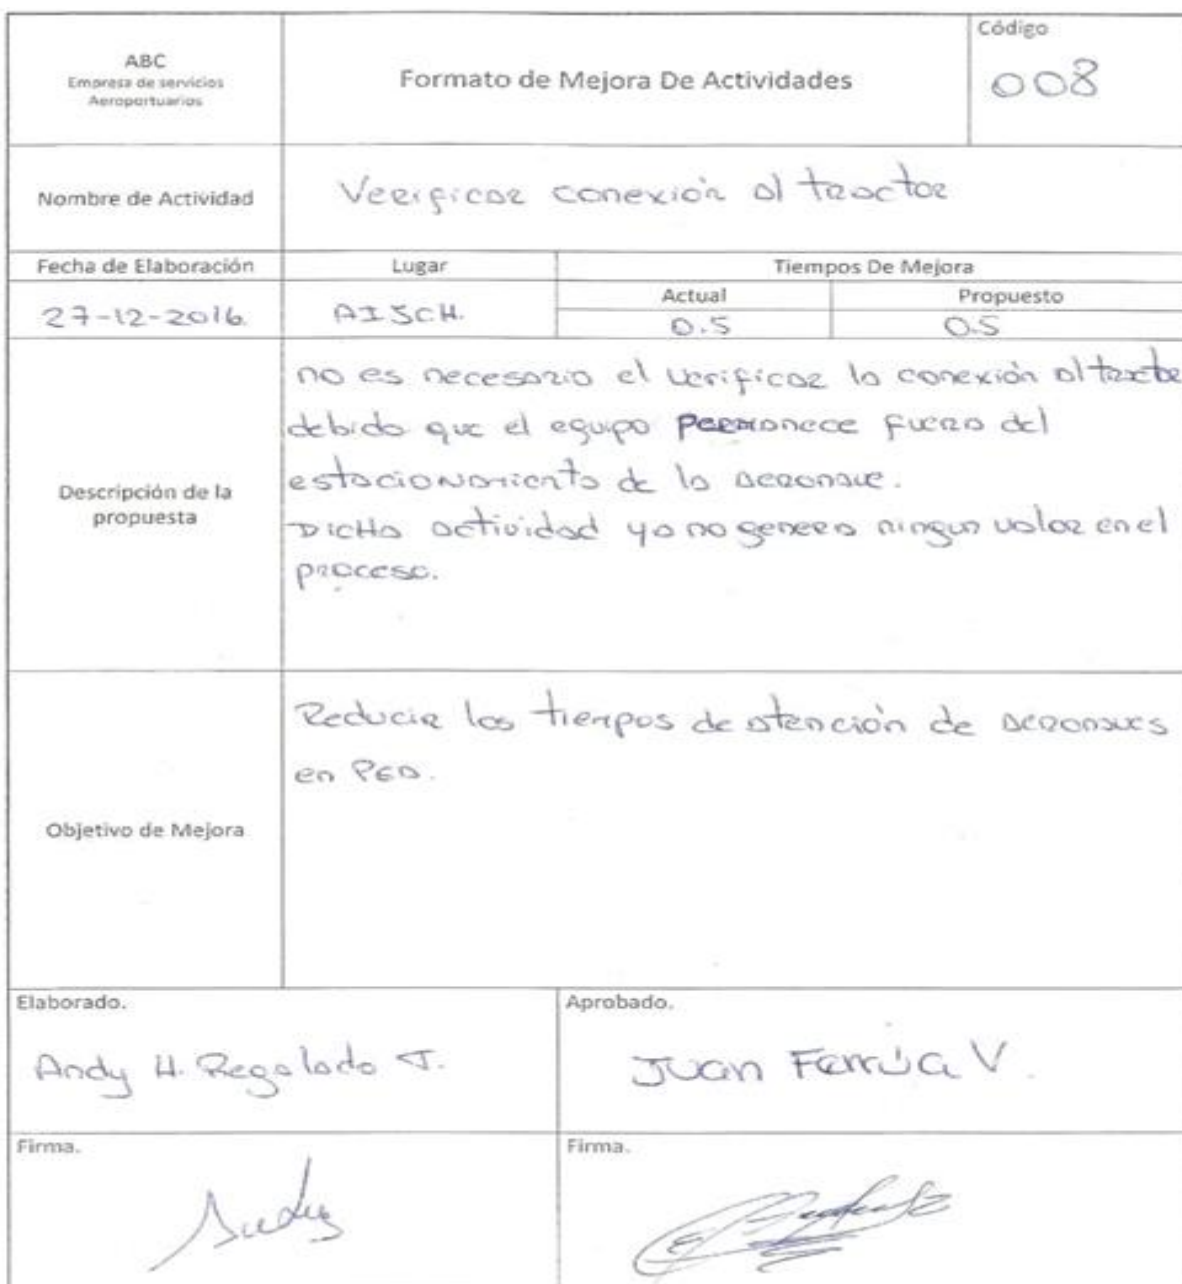 ABC
Empresa de servicios
Aeroportuarios
Formato de Mejora De Actividades
Código
008
Nombre de Actividad
Verificar conexión al tractor
Fecha de Elaboración
Lugar
Tiempos De Mejora
27-12-2016.
AIJCH.
Actual
Propuesto
0.5
0.5
Descripción de la
propuesta
no es necesario el verificar la conexión al tractor
debido que el equipo permanece fuera del
estacionamiento de la aeronave.
DicHa actividad ya no genera ningun valor en el
proceso.
Objetivo de Mejora
Reducir los tiempos de atención de aeronaves
en PEA.
Elaborado.
Andy H. Regalado T.
Aprobado.
Juan Farrúa V.
Firma.
Andy
Firma.